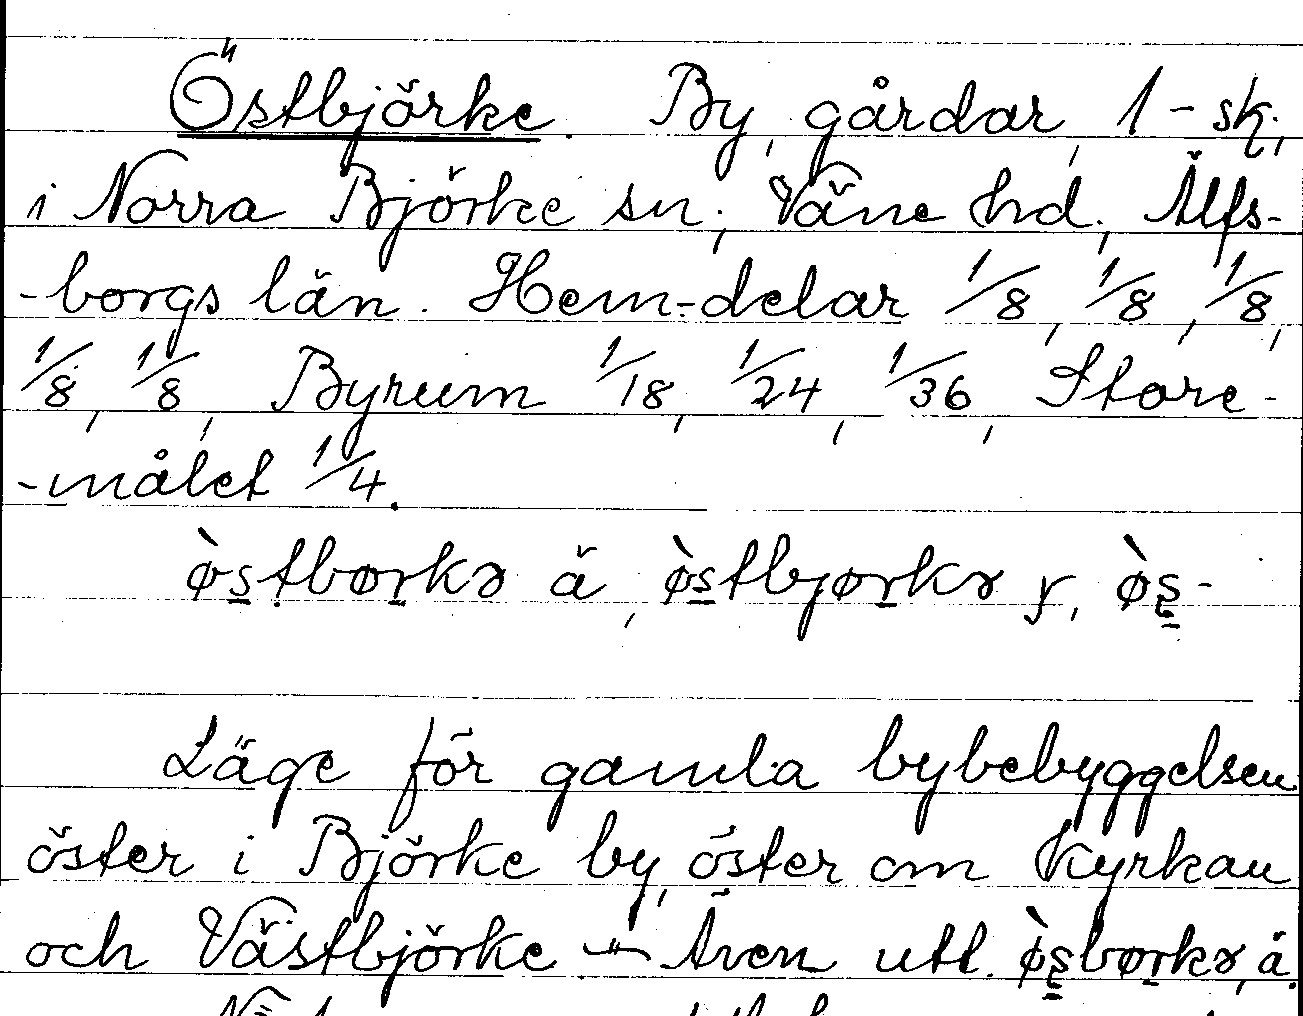 Östbjörke. By, gårdar, 1-sk.,
i Norra Björke sn., Väne hd., Älfs-
-borgs län. Hem-delar 1/8, 1/8, 1/8,
1/8, 1/8, Byrum 1/18, 1/24, 1/36, Store-
-målet 1/4.
ø̀stbørkə ä, ø̀stbjørkə y, ø̀s-
Läge för gamla bybebyggelsen
öster i Björke by, öster om kyrkan
och Västbjörke — Även utl. ø̀sbørkə, ä.